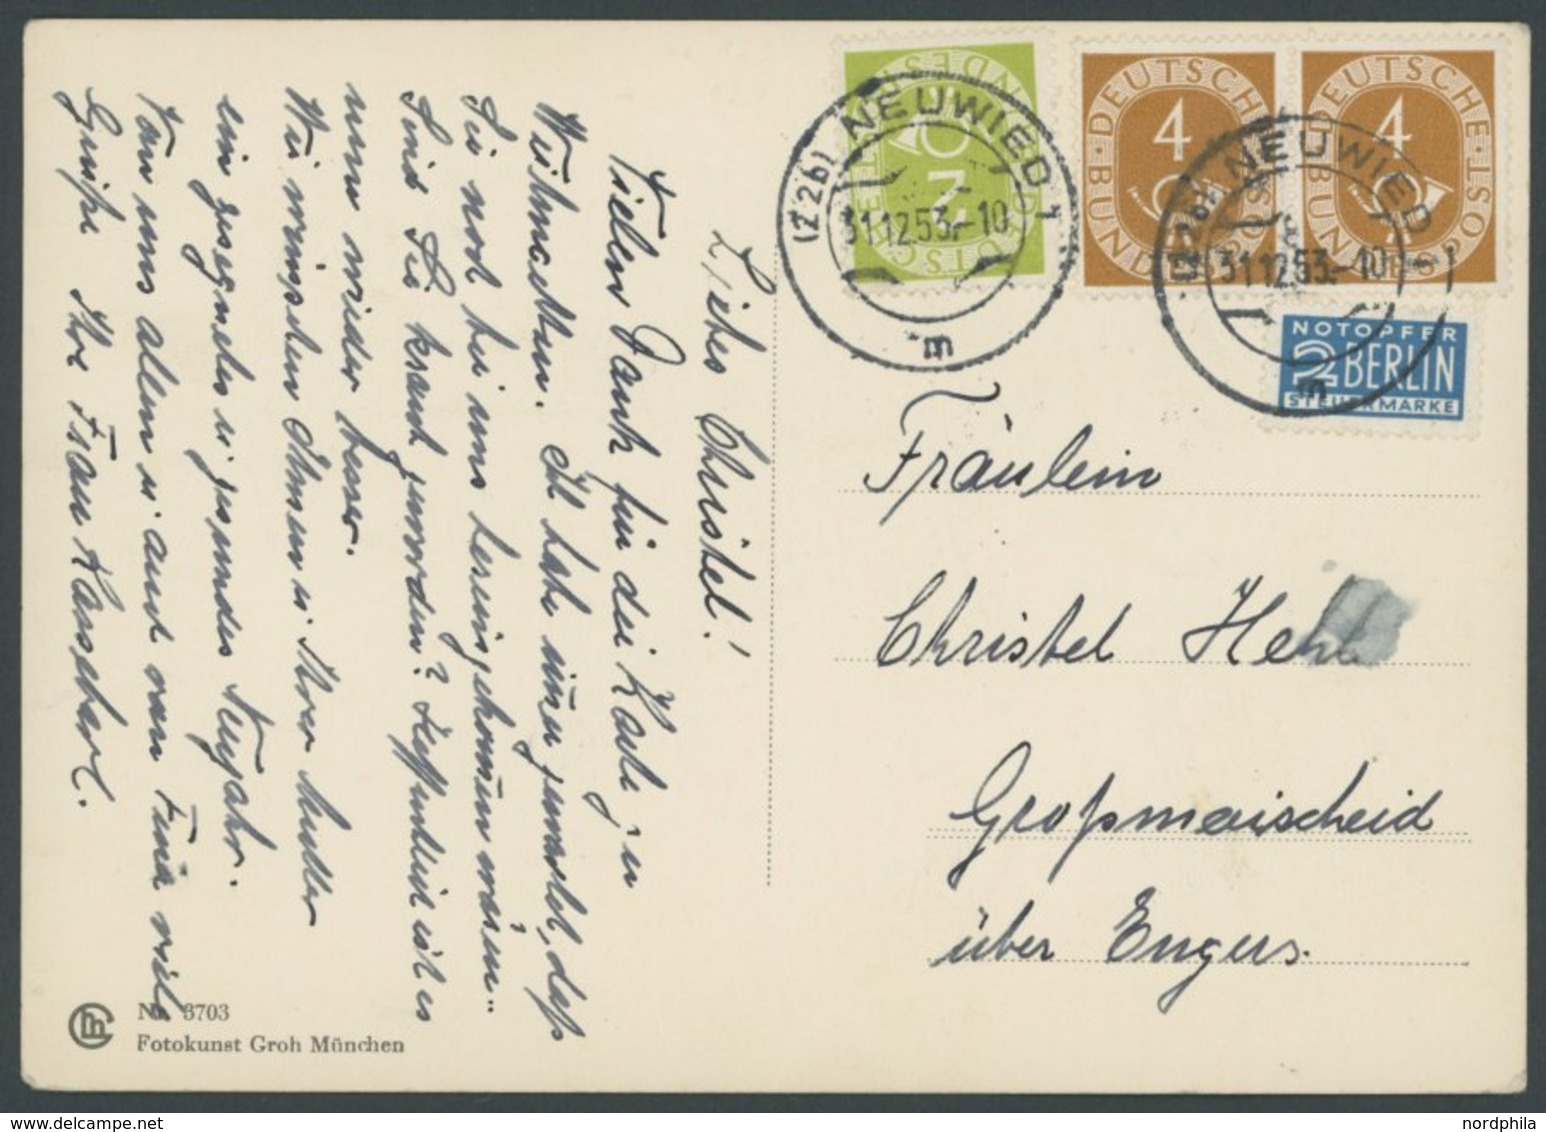 Liebes Christel!
Vielen Dank für die Karte zu
Weihnachten. Ich habe immer gewartet, daß
Sie noch bei uns hereingekommen wären.
Sind Sie krank geworden? Hoffentlich ist es
nun wieder besser.
Wir wünschen Ihnen u. Ihrer Mutter
ein gesegnetes u. gesundes Neujahr.
Von uns allen u. auch von viele
Grüße Ihre Frau
Nr. 3703
Fotokunst Groh München
DEUTSCHE BUNDESPOST
2
DEUTSCHE BUNDESPOST
4
DEUTSCHE·POST
BUNDES
4
(22b) NEUWIED 1
31.12.53.-10
m
(22b) NEUWIED 1
31.12.53.-10
m
NOTOPFER
2 BERLIN
STEUERMARKE
Fräulein
Christel
Großmaischeid
über Engers.
nordphila